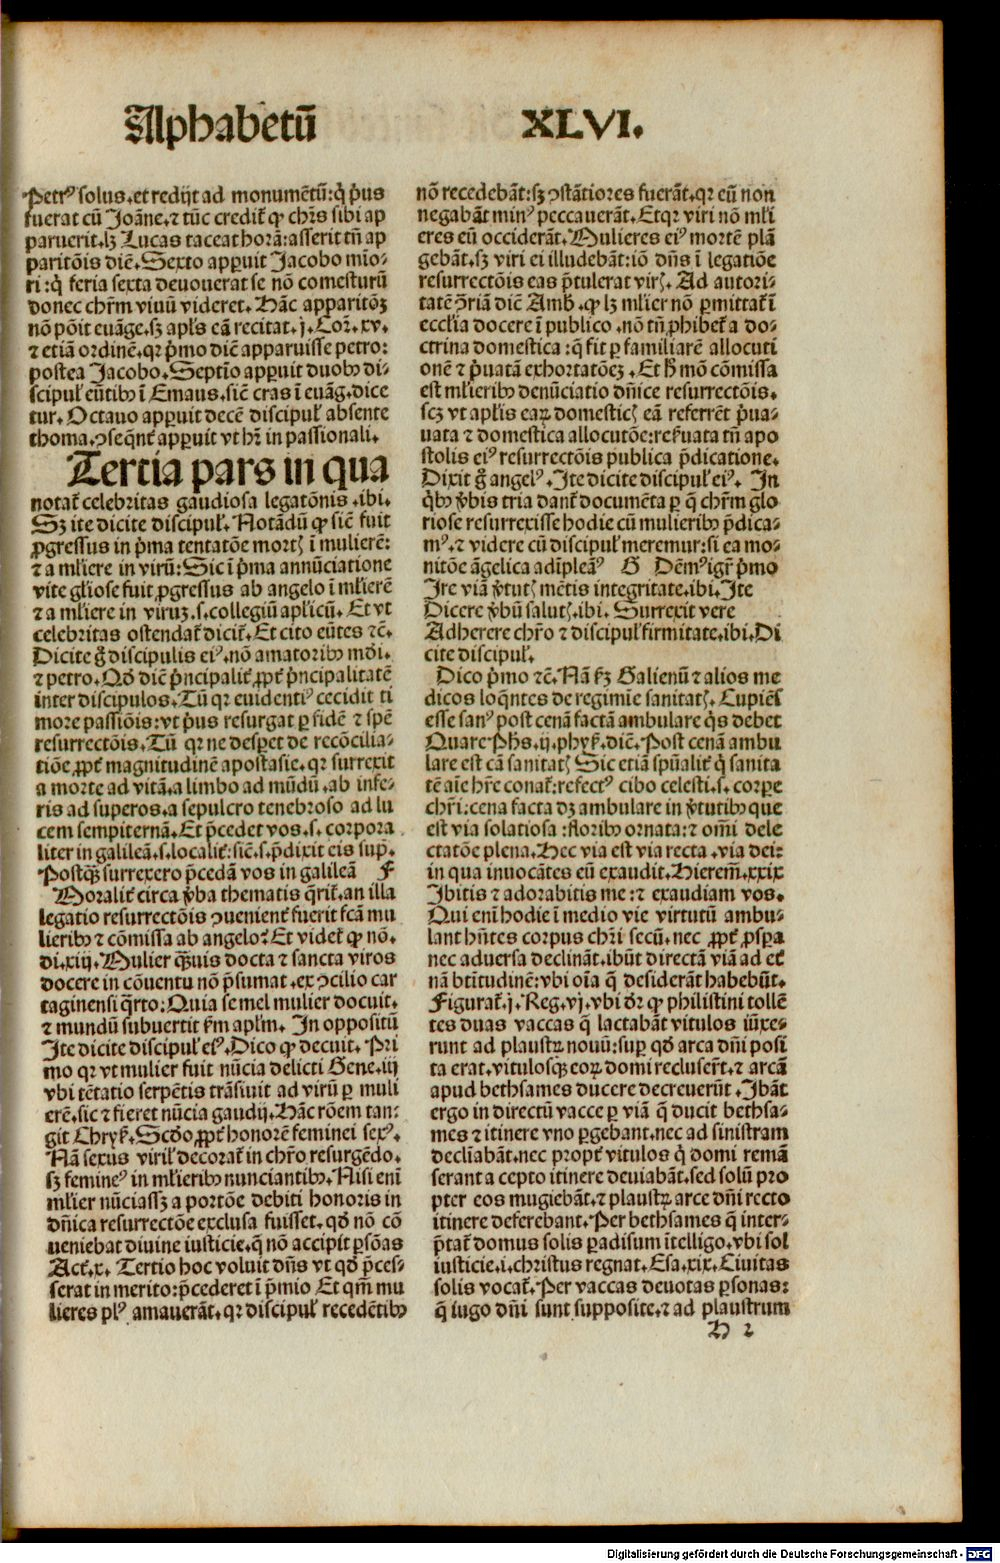 Alphabetū XLVI.
Petrꝰ solus.et redijt ad monumētū:q̇ p̄us
fuerat cū Joāne.⁊ tūc credit̄ ꝙ chr̄s sibi ap
paruerit.lꝫ Lucas taceat horā:asserit tn̄ ap
paritōis diē.Sexto apꝑuit Jacobo mīo⸗
ri:q̇ feria sexta deuouerat se nō comesturū
donec chr̄m viuū videret.Hāc apparitōꝫ
nō pōit euāge.sꝫ apl̄s eā recitat.j.Cor̄.xv.
⁊ etiā ordinē.qꝛ p̄mo diē apparuisse petro:
postea Jacobo.Septīo apꝑuit duobꝰ di⸗
scipul̓ eūtibꝰ ī Emaus.siē cras ī euāg.dice
tur.Octauo apꝑuit decē discipul̓ absente
thoma.ꝯseq̄nt̄ apꝑuit vt hr̄ in passionali.
Tertia pars in qua
notat̄ celebritas gaudiosa legatōnis.ibi.
Sꝫ ite dicite discipul̓.Notādū ꝙ siē fuit
ꝓgressus in p̄ma tentatōe mortꝭ ī mulierē:
⁊ a ml̓iere in virū:Sic ī p̄ma annūciatione
vite gl̓iose fuit ꝓgressus ab angelo ī ml̓ierē
⁊ a ml̓iere in viruꝫ.s.collegiū apl̓icū.Et vt
celebritas ostendat̄ dicit̄.Et cito eūtes ⁊c̄.
Dicite g̊ discipulis eiꝰ.nō amatoribꝰ mūdi.
⁊ petro.Qđ diē p̄ncipalit̄ ꝓpt̄ p̄ncipalitatē
inter discipulos.Tū qꝛ euidentiꝰ cecidit ti
more passiōis:vt p̄us resurgat ꝑ fidē ⁊ spē
resurrectōis.Tū qꝛ ne desꝑet de recōcilia⸗
tiōe ꝓpt̄ magnitudinē apostasie.qꝛ surrexit
a morte ad vitā.a limbo ad mūdū.ab infe⸗
ris ad superos.a sepulcro tenebroso ad lu
cem sempiternā.Et p̄cedet vos.s.corpora
liter in galileā.s.localit̄:siē.s.p̄dixit eis sup̄.
Postq̄ꝫ surrexero p̄cedā vos in galileā F
Moralit̄ circa v̓ba thematis q̄rit̄.an illa
legatio resurrectōis ꝯuenient̄ fuerit fcā mu
lieribꝰ ⁊ cōmissa ab angelo? Et videt̄ ꝙ nō.
di.xiij.Mulier q̄ꝫuis docta ⁊ sancta viros
docere in cōuentu nō p̄sumat.ex ꝯcilio car
taginensi q̄rto:Quia semel mulier docuit.
⁊ mundū subuertit km̄ apl̓m. In oppositū
Ite dicite discipul̓ eiꝰ.Dico ꝙ decuit.Pri
mo qꝛ vt mulier fuit nūcia delicti Gene.iij
vbi tētatio serpētis trāsiuit ad virū ꝑ muli
erē.sic ⁊ fieret nūcia gaudij.Hāc rōem tan⸗
git Chryſ.Scđo ꝓpt̄ honorē feminei sexꝰ.
Nā sexus viril̓ decorat̄ in chr̄o resurgēdo.
sꝫ femineꝰ in ml̓ieribꝰ nunciantibꝰ.Nisi enī
ml̓ier nūciasſꝫ a portōe debiti honoris in
dn̄ica resurrectōe exclusa fuisset.qđ nō cō
ueniebat diuine iusticie.q̄ nō accipit ꝑsōas
Act̄.x. Tertio hoc voluit dn̄s vt qđ p̄ces⸗
serat in merito:p̄cederet ī p̄mio Et qm̄ mu
lieres plꝰ amauerāt.qꝛ discipul̓ recedētibꝰ
nō recedebāt:sꝫ ꝯstātiores fuerāt.qꝛ eū non
negabāt minꝰ peccauerāt.Etqꝛ viri nō ml̓i
eres eū occiderāt.Mulieres eiꝰ mortē plā
gebāt.sꝫ viri ei illudebāt:iō dn̄s ī legatiōe
resurrectōis eas p̄tulerat virꝭ. Ad autori⸗
tatē ꝯ̄riā diē Amb̄.ꝙ lꝫ ml̓ier nō ꝑmittat̄ ī
eccl̓ia docere ī publico.nō tn̄ ꝓhibet̄ a do⸗
ctrina domestica:q̄ fit ꝑ familiarē allocuti
onē ⁊ p̓uatā exhortatōeꝫ.Et h̄ mō cōmissa
est ml̓ieribꝰ denūciatio dn̄ice resurrectōis.
scꝫ vt apl̓is eaꝝ domesticꝭ eā referrēt p̓ua⸗
uata ⁊ domestica allocutōe:reſ̓uata tn̄ apo
stolis eiꝰ resurrectōis publica p̄dicatione.
Dixit g̊ angelꝰ.Ite dicite discipul̓ eiꝰ. In
q̇bꝰ v̓bis tria dant̄ documēta ꝑ q̄ chr̄m glo
riose resurrexisse hodie cū mulieribꝰ p̄dica⸗
mꝰ.⁊ videre cū discipul̓ meremur:si ea mo⸗
nitōe āgelica adīpleāꝰ G Dēmꝰ igr̄ p̄mo
Ire viā v̓tutꝭ mētis integritate.ibi.Ite
Dicere v̓bū salutꝭ.ibi. Surrexit vere
Adherere chr̄o ⁊ discipul̓ firmitate.ibi.Di
cite discipul̓.
Dico p̄mo ⁊c̄.Nā ſꝫ Galienū ⁊ alios me
dicos loq̄ntes de regimīe sanitatꝭ.Cupiēs
esse sanꝰ post cenā factā ambulare q̇s debet
Quare Ph̄s.ij.phyſ̄.diē.Post cenā ambu
lare est cā sanitatꝭ Sic etiā spūalit̄ q̇ sanita
tē aīe hr̄e conat̄:refectꝰ cibo celesti.s.corꝑe
chr̄i:cena facta dꝫ ambulare in v̓tutibꝰ que
est via solatiosa:floribꝰ ornata:⁊ oīm dele
ctatōe plena.Hec via est via recta.via dei:
in qua inuocātes eū exaudit.Hierem̄.xxix
Ibitis ⁊ adorabitis me:⁊ exaudiam vos.
Qui enī hodie ī medio vie virtutū ambu⸗
lant hn̄tes corpus chr̄i secū.nec ꝓpt̄ ꝓsꝑa
nec aduersa declināt.ibūt directā viā ad et̓
nā btītudinē:vbi oīa q̄ desiderāt habebūt.
Figurat̄.j.Reg.vj.vbi dr̄ ꝙ philistini tollē
tes duas vaccas q̄ lactabāt vitulos iūxe⸗
runt ad plaustꝝ nouū:suꝑ qđ arca dn̄i posi
ta erat.vitulosqꝫ eoꝝ domi recluserūt.⁊ arcā
apud bethsames ducere decreuerūt.Ibāt
ergo in directū vacce ꝑ viā q̄ ducit bethsa⸗
mes ⁊ itinere vno ꝑgebant.nec ad sinistram
declīabāt.nec propt̄ vitulos q̇ domi remā
serant a cepto itinere deuiabāt.sed solū pro
pter eos mugiebāt.⁊ plaustꝝ arce dn̄i recto
itinere deferebant.Per bethsames q̄ inter⸗
p̄tat̄ domus solis ꝑadisum ītelligo.vbi sol
iusticie.i.christus regnat.Esa.xix.Ciuitas
solis vocat̄.Per vaccas deuotas ꝑsonas:
q̄ iugo dn̄i sunt supposite.⁊ ad plaustrum
H 2
Digitalisierung gefördert durch die Deutsche Forschungsgemeinschaft - DFG